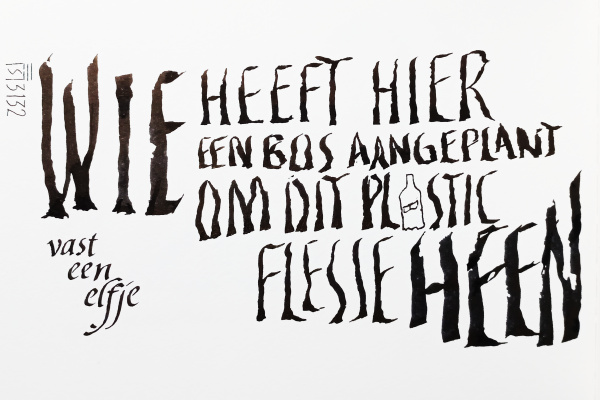 WIE HEEFT HIER
EEN BOS AANGEPLANT
OM DIT PLASTIC
FLESJE HEEN
vast
een
elfje